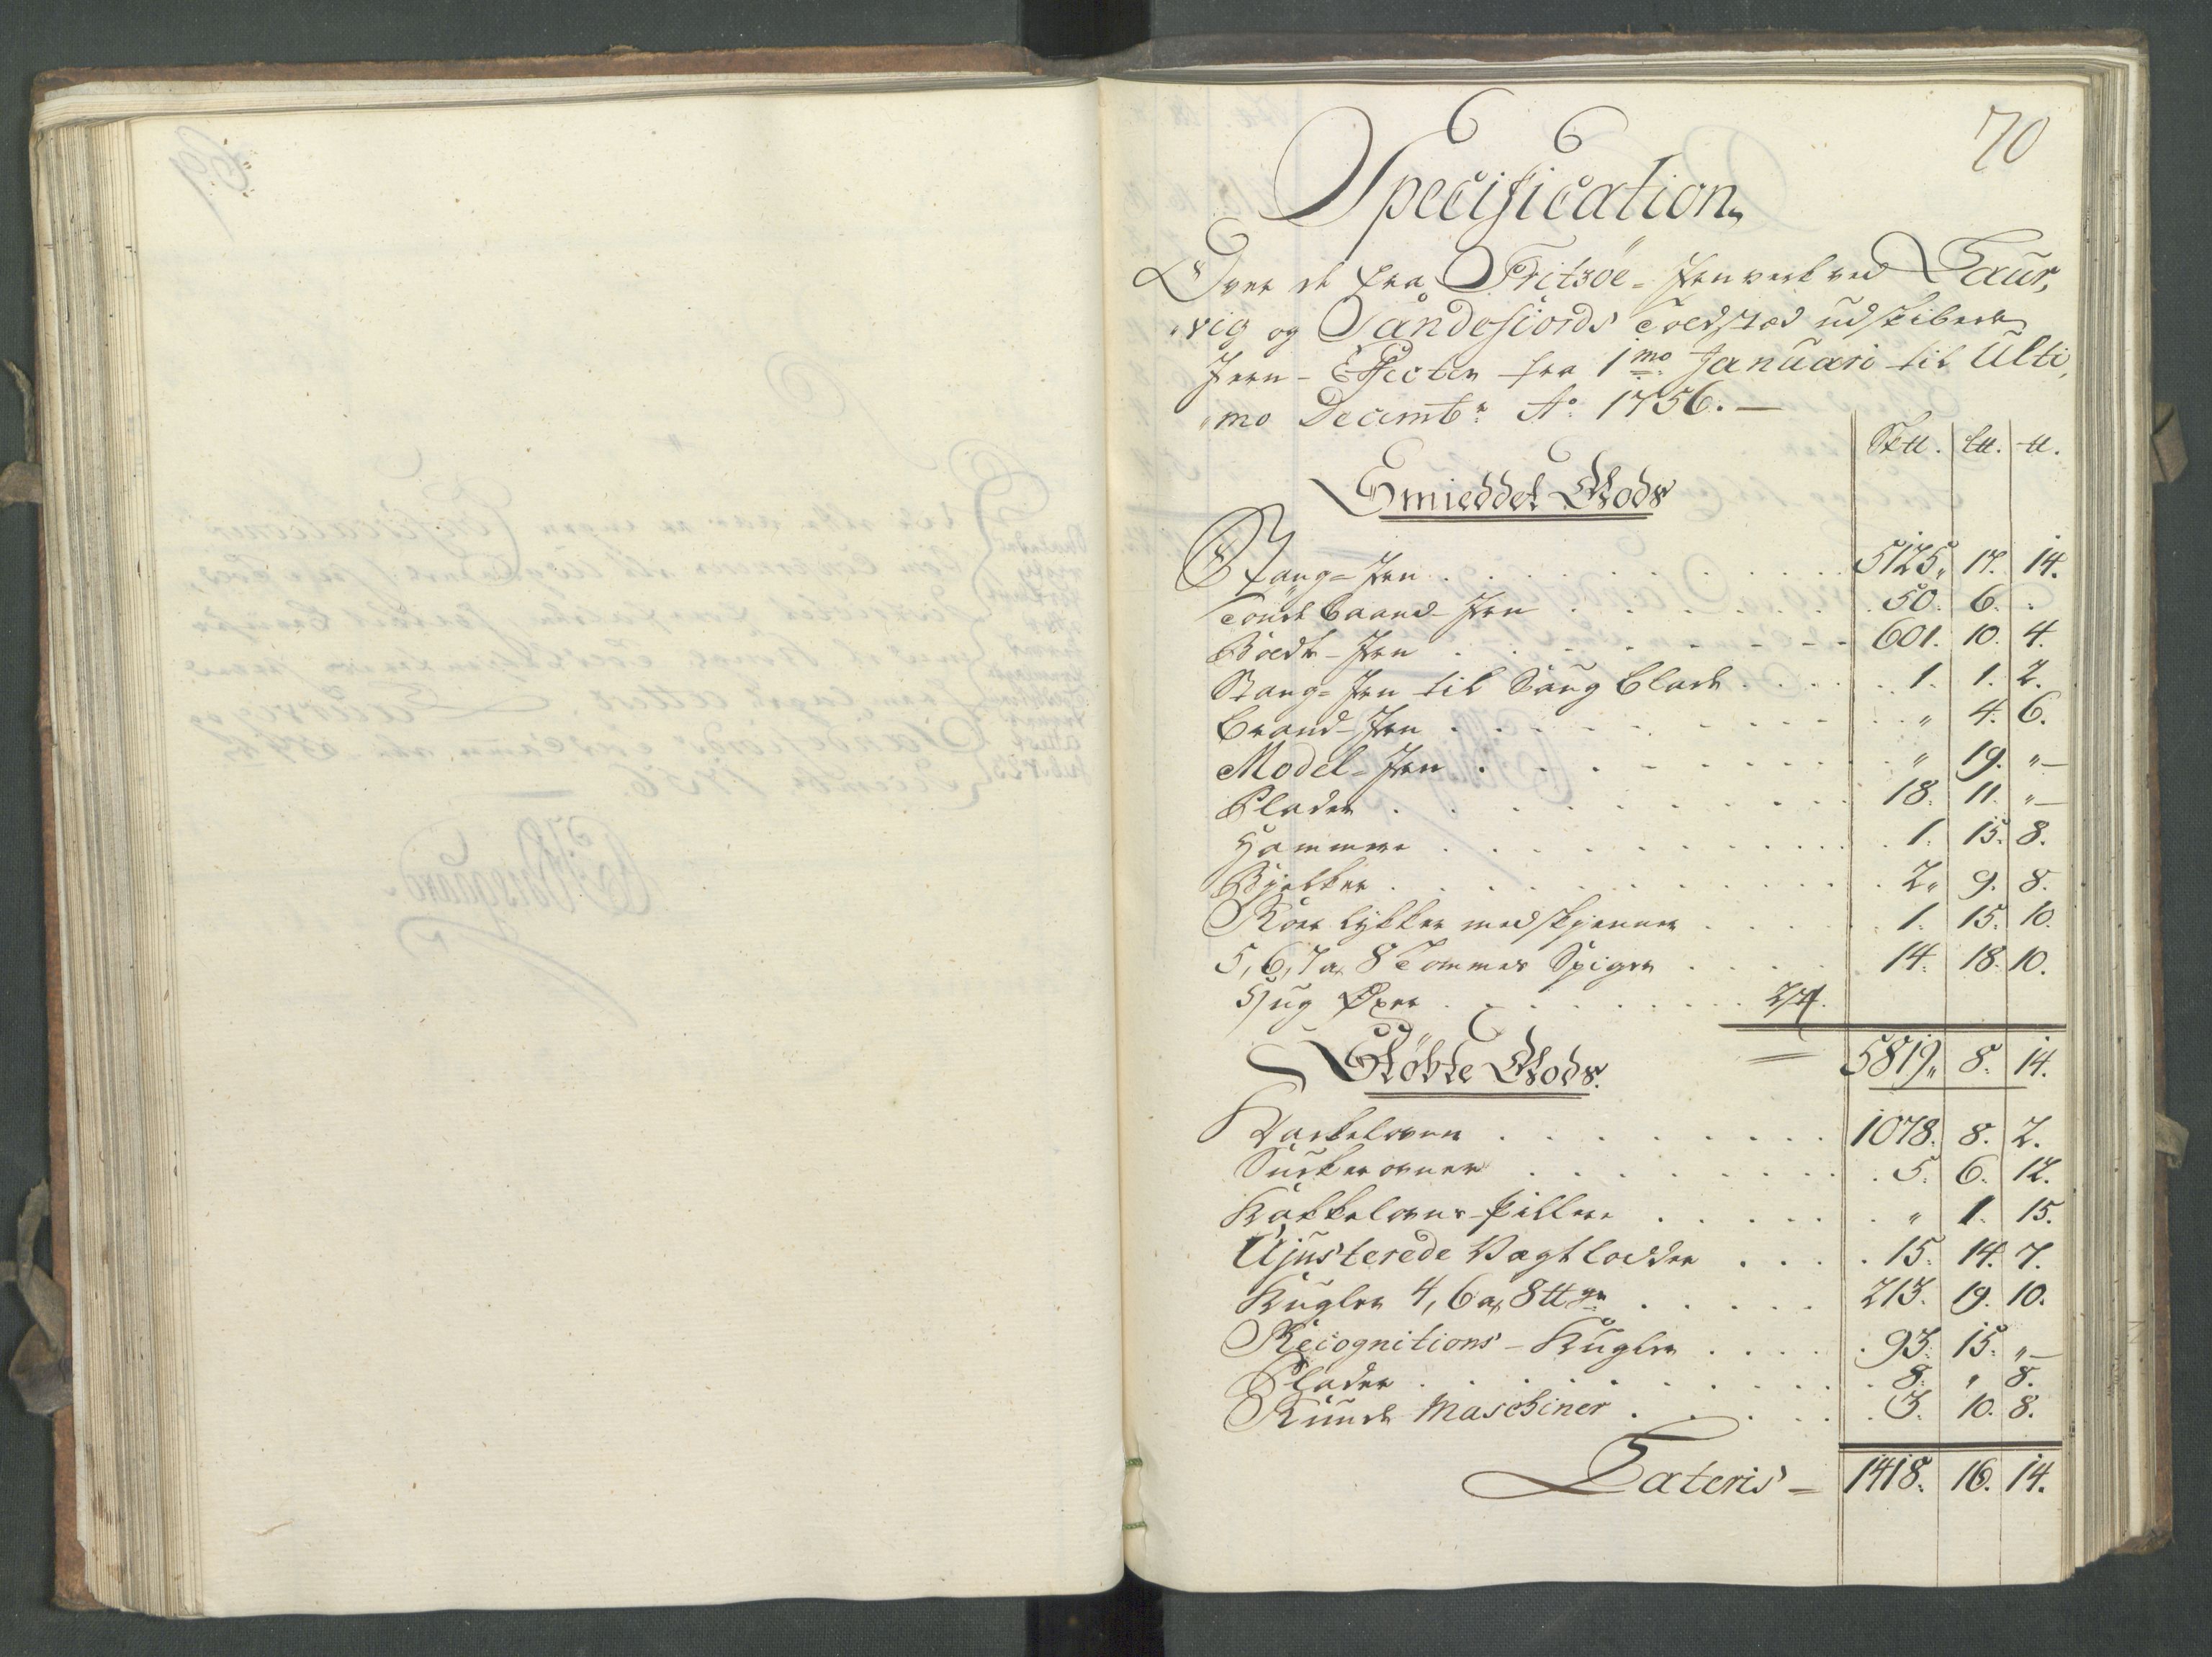 70
Specification
Over de fra Fritzöe-Jernverk ved Laur,
,vig og Sandefiords Toldsted udskibede
Jern-Effecter fra 1mo Januari til Ulti,
,mo Decembr Ao 1756.
Sktt. Ltt. tt.
Smieddet Gods
Stang-Jern 5125. 17. 14.
Tönde baand-Jern 50. 6. "
Boldt-Jern 601. 10. 4.
Stang-Jern til Saug blade 1. 1. 2.
Brand-Jern " 4. 6.
Model-Jern " 19. "
Plader 18. 11. "
Hammere 1. 15. 8.
Bielker 2. 9. 8.
Roer lykker med 1. 15. 10.
5, 6, 7 a 8 Tommer Spiger 14. 18. 10.
Hug Øxer
5819. 8. 14.
Støbte Gods.
Kackelovne 1078. 8. 2.
Sucker ovner 5. 6. 12.
Kakkelovns-Pillere " 1. 15.
Ujusterede Vægt lodder 15. 14. 7.
Kugler 4, 6 a 8 tt 213. 19. 10.
Recognitions-Kugler 93. 15. "
Plader 8. " 8.
Runde Maschiner 3. 10. 8.
Lateris 1418. 16. 14.